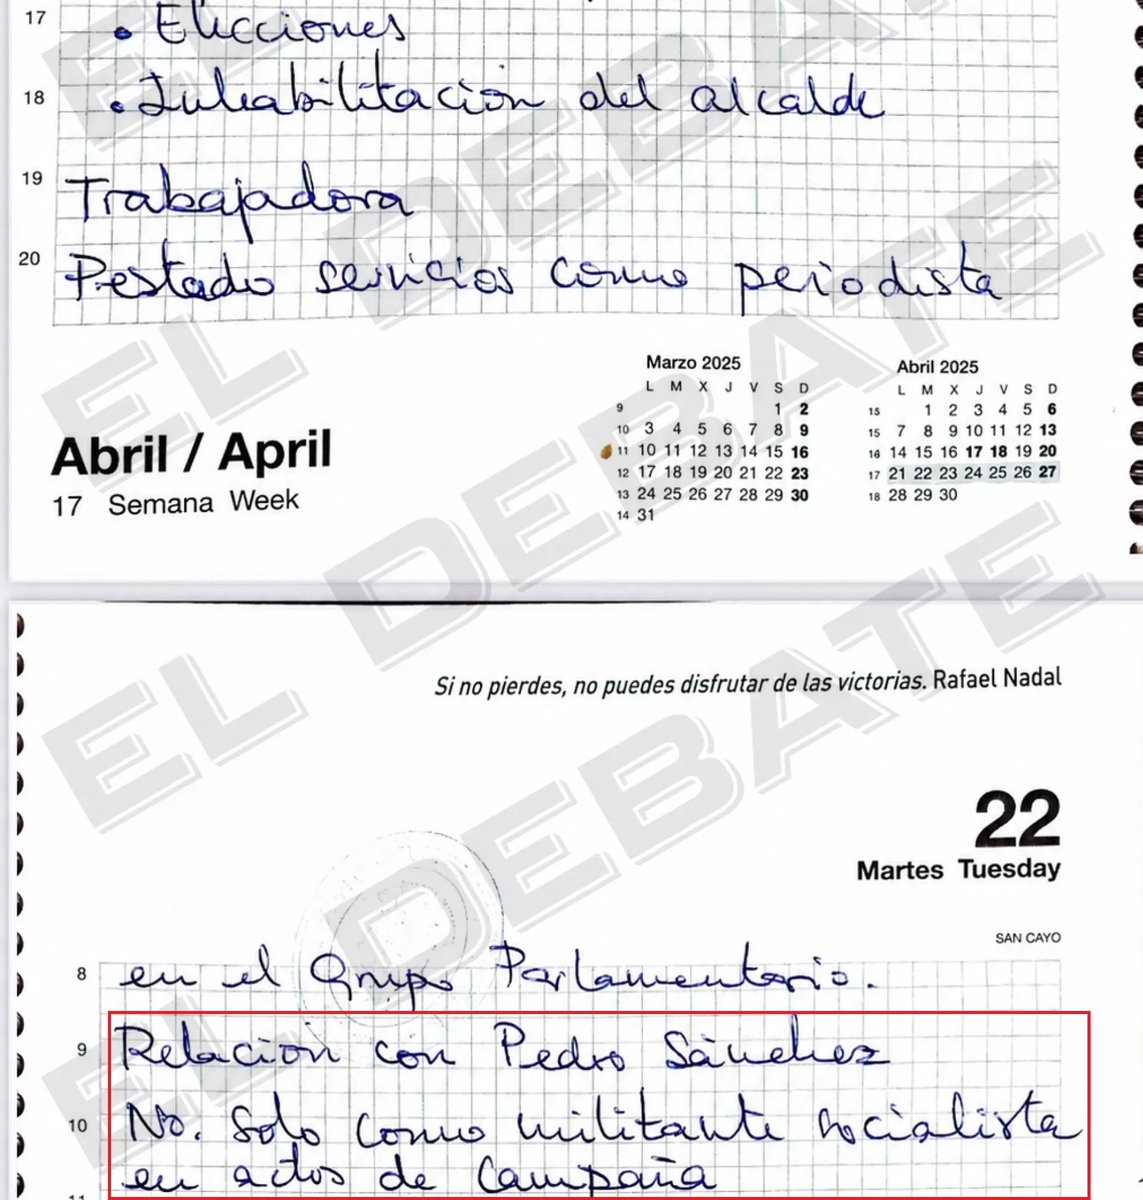 17 • Elecciones
18 • Inhabilitación del alcalde
19 Trabajadora
20 Prestado servicios como periodista
Abril / April
17 Semana Week
Marzo 2025
L M X J V S D
9 1 2
10 3 4 5 6 7 8 9
11 10 11 12 13 14 15 16
12 17 18 19 20 21 22 23
13 24 25 26 27 28 29 30
14 31
Abril 2025
L M X J V S D
15 1 2 3 4 5 6
15 7 8 9 10 11 12 13
16 14 15 16 17 18 19 20
17 21 22 23 24 25 26 27
18 28 29 30
Si no pierdes, no puedes disfrutar de las victorias. Rafael Nadal
22
Martes Tuesday
SAN CAYO
8 en el Grupo Parlamentario.
9 Relación con Pedro Sánchez
10 No. Solo como militante socialista
en actos de campaña
11
EL DEBATE
EL DEBATE
EL DEBATE